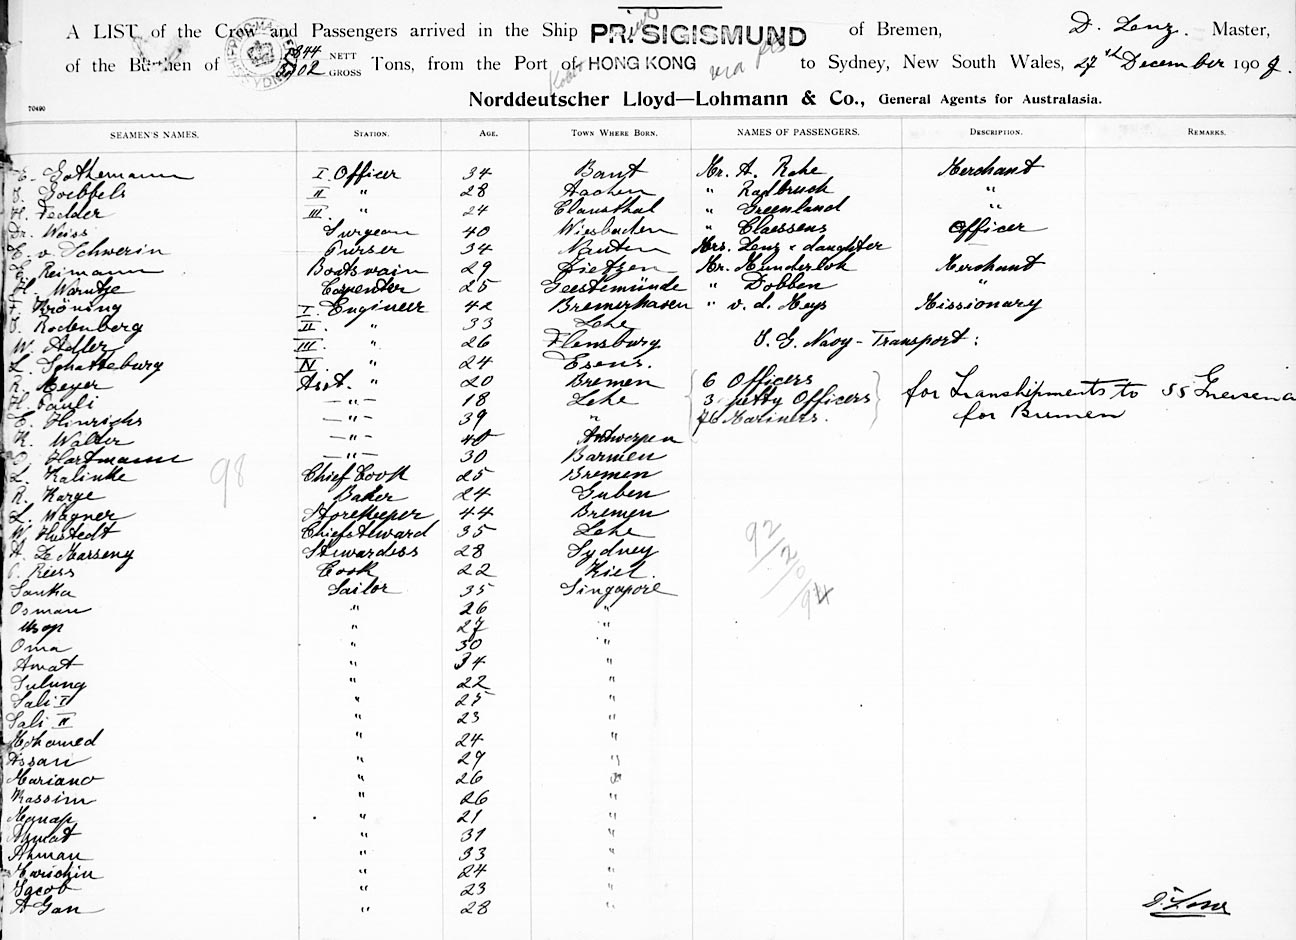 A LIST of the Crew and Passengers arrived in the Ship PR. SIGISMUND of Bremen, D. Lenz. Master,
of the Burthen of 1844 NETT 3302 GROSS Tons, from the Port of HONG KONG via ports to Sydney, New South Wales, 27th December 1909.
Norddeutscher Lloyd—Lohmann & Co., General Agents for Australasia.
70490
SEAMEN'S NAMES. STATION. AGE. TOWN WHERE BORN. NAMES OF PASSENGERS. DESCRIPTION. REMARKS.
E. Gathemann I Officer 34 Bant Mr. A. Rohe Merchant
J. Goebbels II " 28 Aachen " Radbruch "
H. Fedder III " 24 Clausthal " Greenland "
Dr. Weiss Surgeon 40 Wiesbaden " Claessens Officer
E. v. Schwerin Purser 34 Mrs. Lenz & daughter
E. Reimann Boatswain 29 Mr. Munderloh Merchant
H. Warntje Carpenter 25 Geestemünde " Dobben "
Kröning I. Engineer 42 Bremerhaven " v. d. Heys Missionary
J. Rodenberg II. " 33 Lehe
W. Adler III. " 26 Flensburg I. G. Navy - Transport:
L. Schatteburg IV. " 24 Esens.
R. Meyer Asst. " 20 Bremen 6 Officers
H. Pauli —"— 18 Lehe 3 petty Officers for Transhipments to SS Gneisenau
E. Hinrichs —"— 39 " 76 Mariners. for Bremen
K. Walter —"— 40 Antwerpen
O. Hartmann —"— 30 Barmen
98
L. Kalinke Chief Cook 25 Bremen
R. Karge Baker 24 Guben
L. Wagner Storekeeper 44 Bremen
W. Hustedt Chiefsteward 35 Lehe
A. Le Marseny Stewardess 28 Sydney
P. Riess Cook 22 Kiel.
92/2/0/94
Sanka Sailor 35 Singapore
Osman " 26 "
Usop " 27 "
Oma " 30 "
Amat " 34 "
Sulung " 22 "
Sali I " 25 "
Sali II " 23 "
Mohamed " 24 "
Assan " 29 "
Mariano " 26 "
Kassim " 26 "
" 21 "
Ahmat " 31 "
Ahman " 33 "
" 24 "
Jacob " 23 "
A Gan " 28 "
D. Lenz